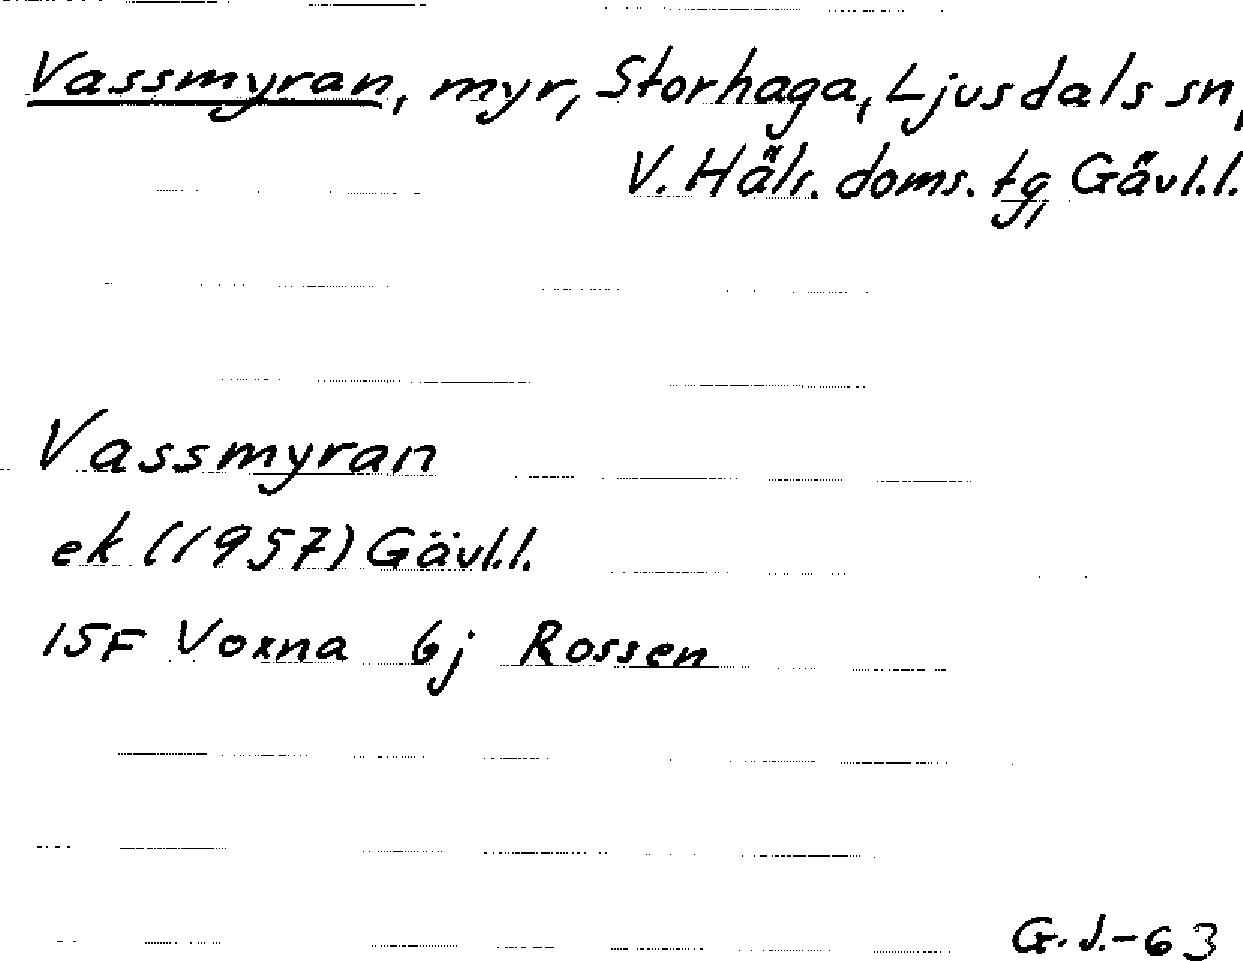 Vassmyran, myr, Storhaga, Ljusdals sn,
V. Häls. doms. tg, Gävl.l.
Vassmyran
ek (1957) Gävl.l.
15F Voxna 6j Rossen
G.J.-63